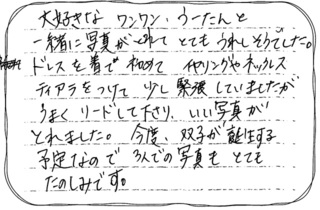 大好きな ワンワン、うーたんと
一緒に写真がとれて とてもうれしそうでした。
ドレスを着て 初めて イヤリングやネックレス
ティアラをつけて 少し 緊張していましたが
うまく リードして下さり、いい写真が
とれました。今度 双子が 誕生する
予定なので 3人での写真も とても
たのしみです。